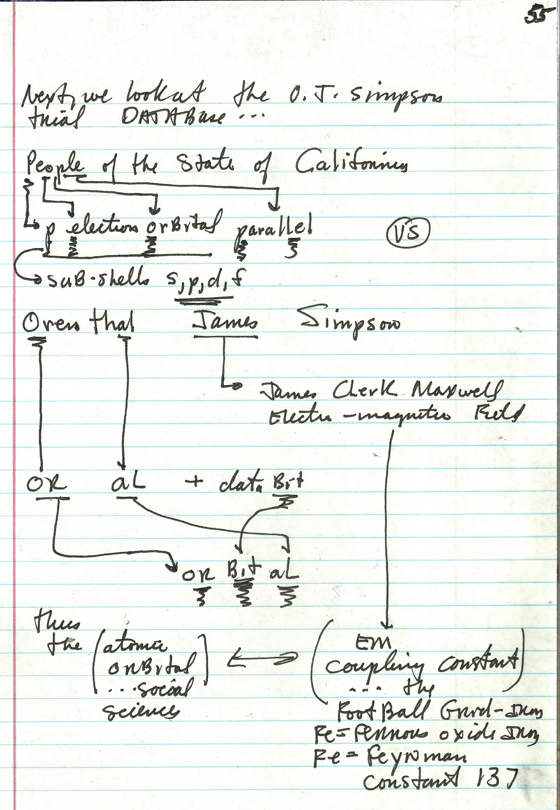 55
Next, we look at the O.J. Simpson
trial DATABase ...
People of the State of California
p election orBital parallel
VS
suB-shells s,p,d,f
Orenthal James Simpson
James Clerk Maxwell
Electro-magnetic Field
OR aL + data Bit
OR Bit aL
thus
the (atomic
orBital
...social
sciences
EM
Coupling Constant
... the
FootBall Grid-Iron
Fe = Ferrous oxide Iron
Fe = Feynman
Constant 137